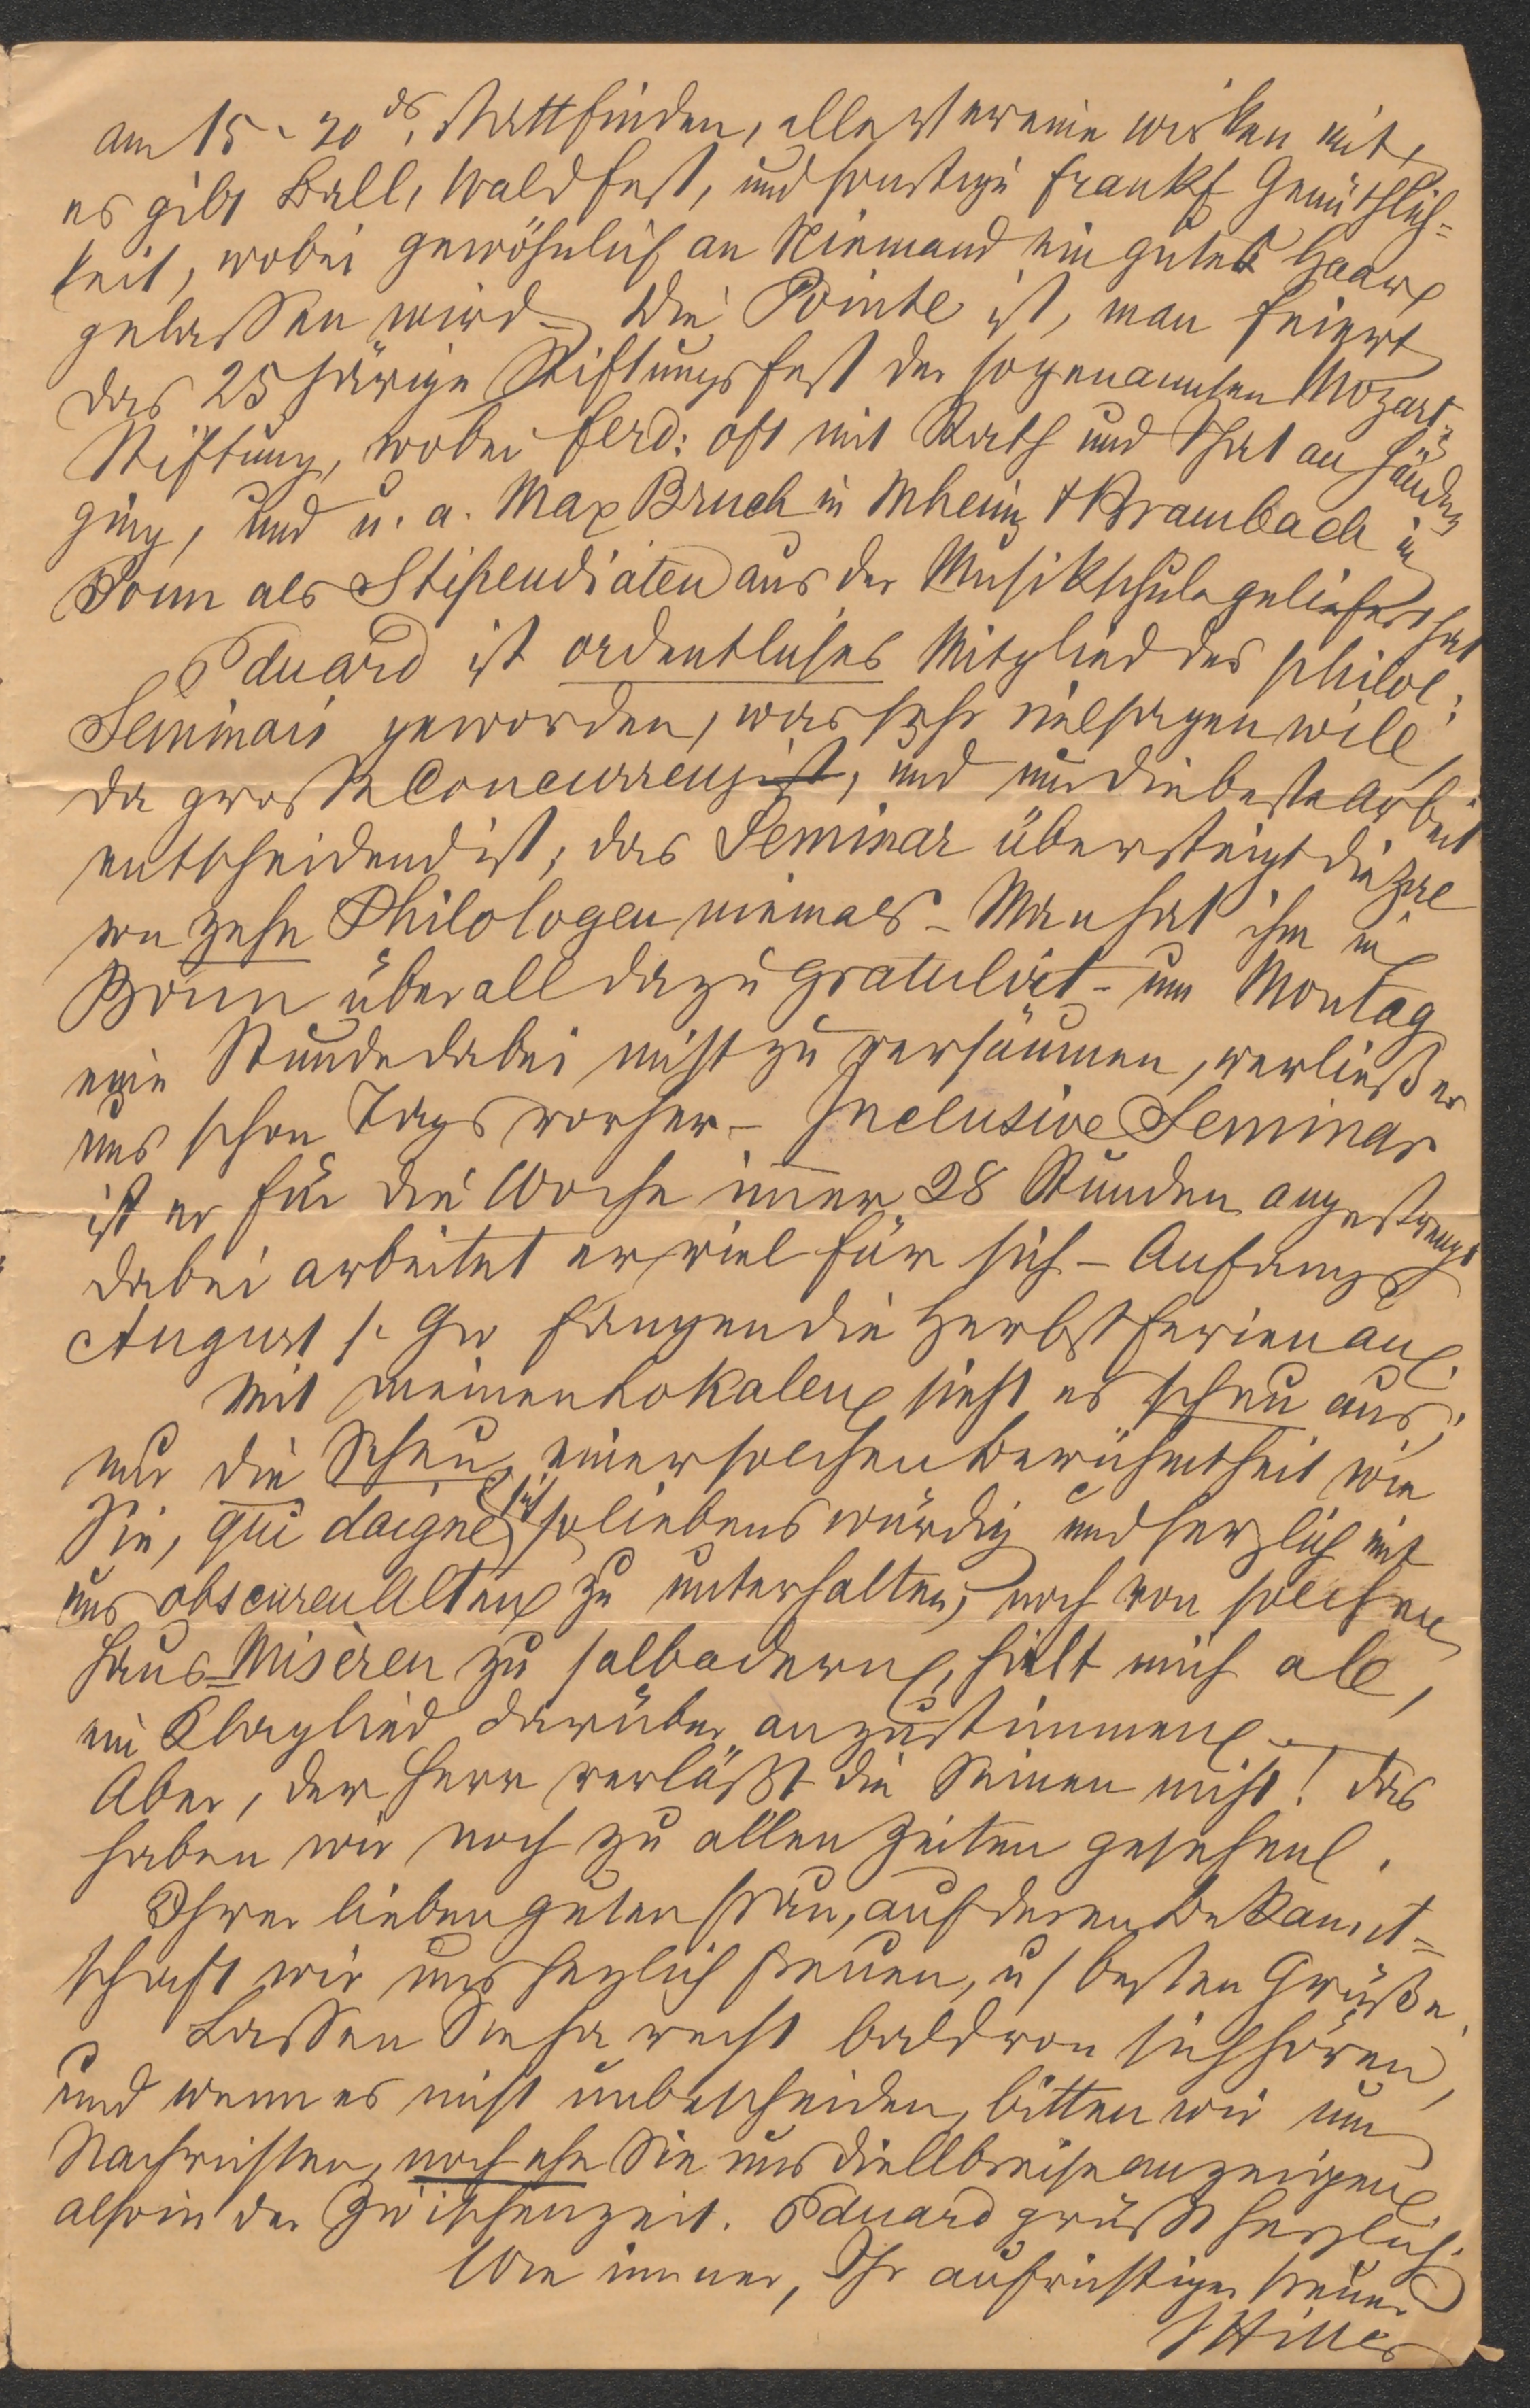 am 15-20 ds. stattfinden, alle Vereine wirken mit,
es gibt Ball, Waldfest, und sonstige Frankf Gemüthlich=
keit, wobei gewöhnlich an Niemand ein gutes Haar
gelassen wird – Die Pointe ist, man feiert
das 25 järige Stiftungsfest der sogenannten Mozart
Stiftung, wobei Ferd: oft mit Rath und That an Händen
ging, und u. a. Max Bruch in Mheim & Brambach in
Bonn als Stipendiaten aus der Musikschule geliefert hat
Eduard ist ordentliches Mitglied des philol:
Seminars geworden, was sehr vielsagen will,
da große Concurrenz ist, und nur die beste Arbeit
entscheidend ist, das Seminar übersteigt die Zal
von zehn Philologen niemals – Man hat ihm in
Bonn überall dazu gratulirt – um Montag
eine Stunde dabei nicht zu versäumen, verließ er
uns schon Tags vorher – Inclusive Seminar
ist er für die Woche immer 28 Stunden angestrengt
dabei arbeitet er viel für sich – Anfangs
August fangen die Herbstferien an
Mit meinen Lokalen sieht es scheu aus,
nur die Scheu, einer solchen Berühmtheit wie
Sie, qui daigne sich so liebenswürdig und herzlich mit
uns obscuren Alten zu unterhalten, noch von solchen
Haus-Misèren zu salbadern, hielt mich ab,
ein Klaglied darüber anzustimmen.
Aber, der Herr verläßt die Seinen nicht! das
haben wir noch zu allen Zeiten gesehen.
Ihrer lieben guten Frau, auf deren Bekannt=
schaft wir uns herzlich freuen, u/ besten Grüße.
Lassen Sie ja recht bald von sich hören,
und wenn es nicht unbescheiden, bitten wir um
Nachrichten, noch ehe Sie uns die Abreise anzeigen
also in der Zwischenzeit. Eduard grüßt herzlich.
Wie immer, Ihr aufrichtiger treuer
Hiller